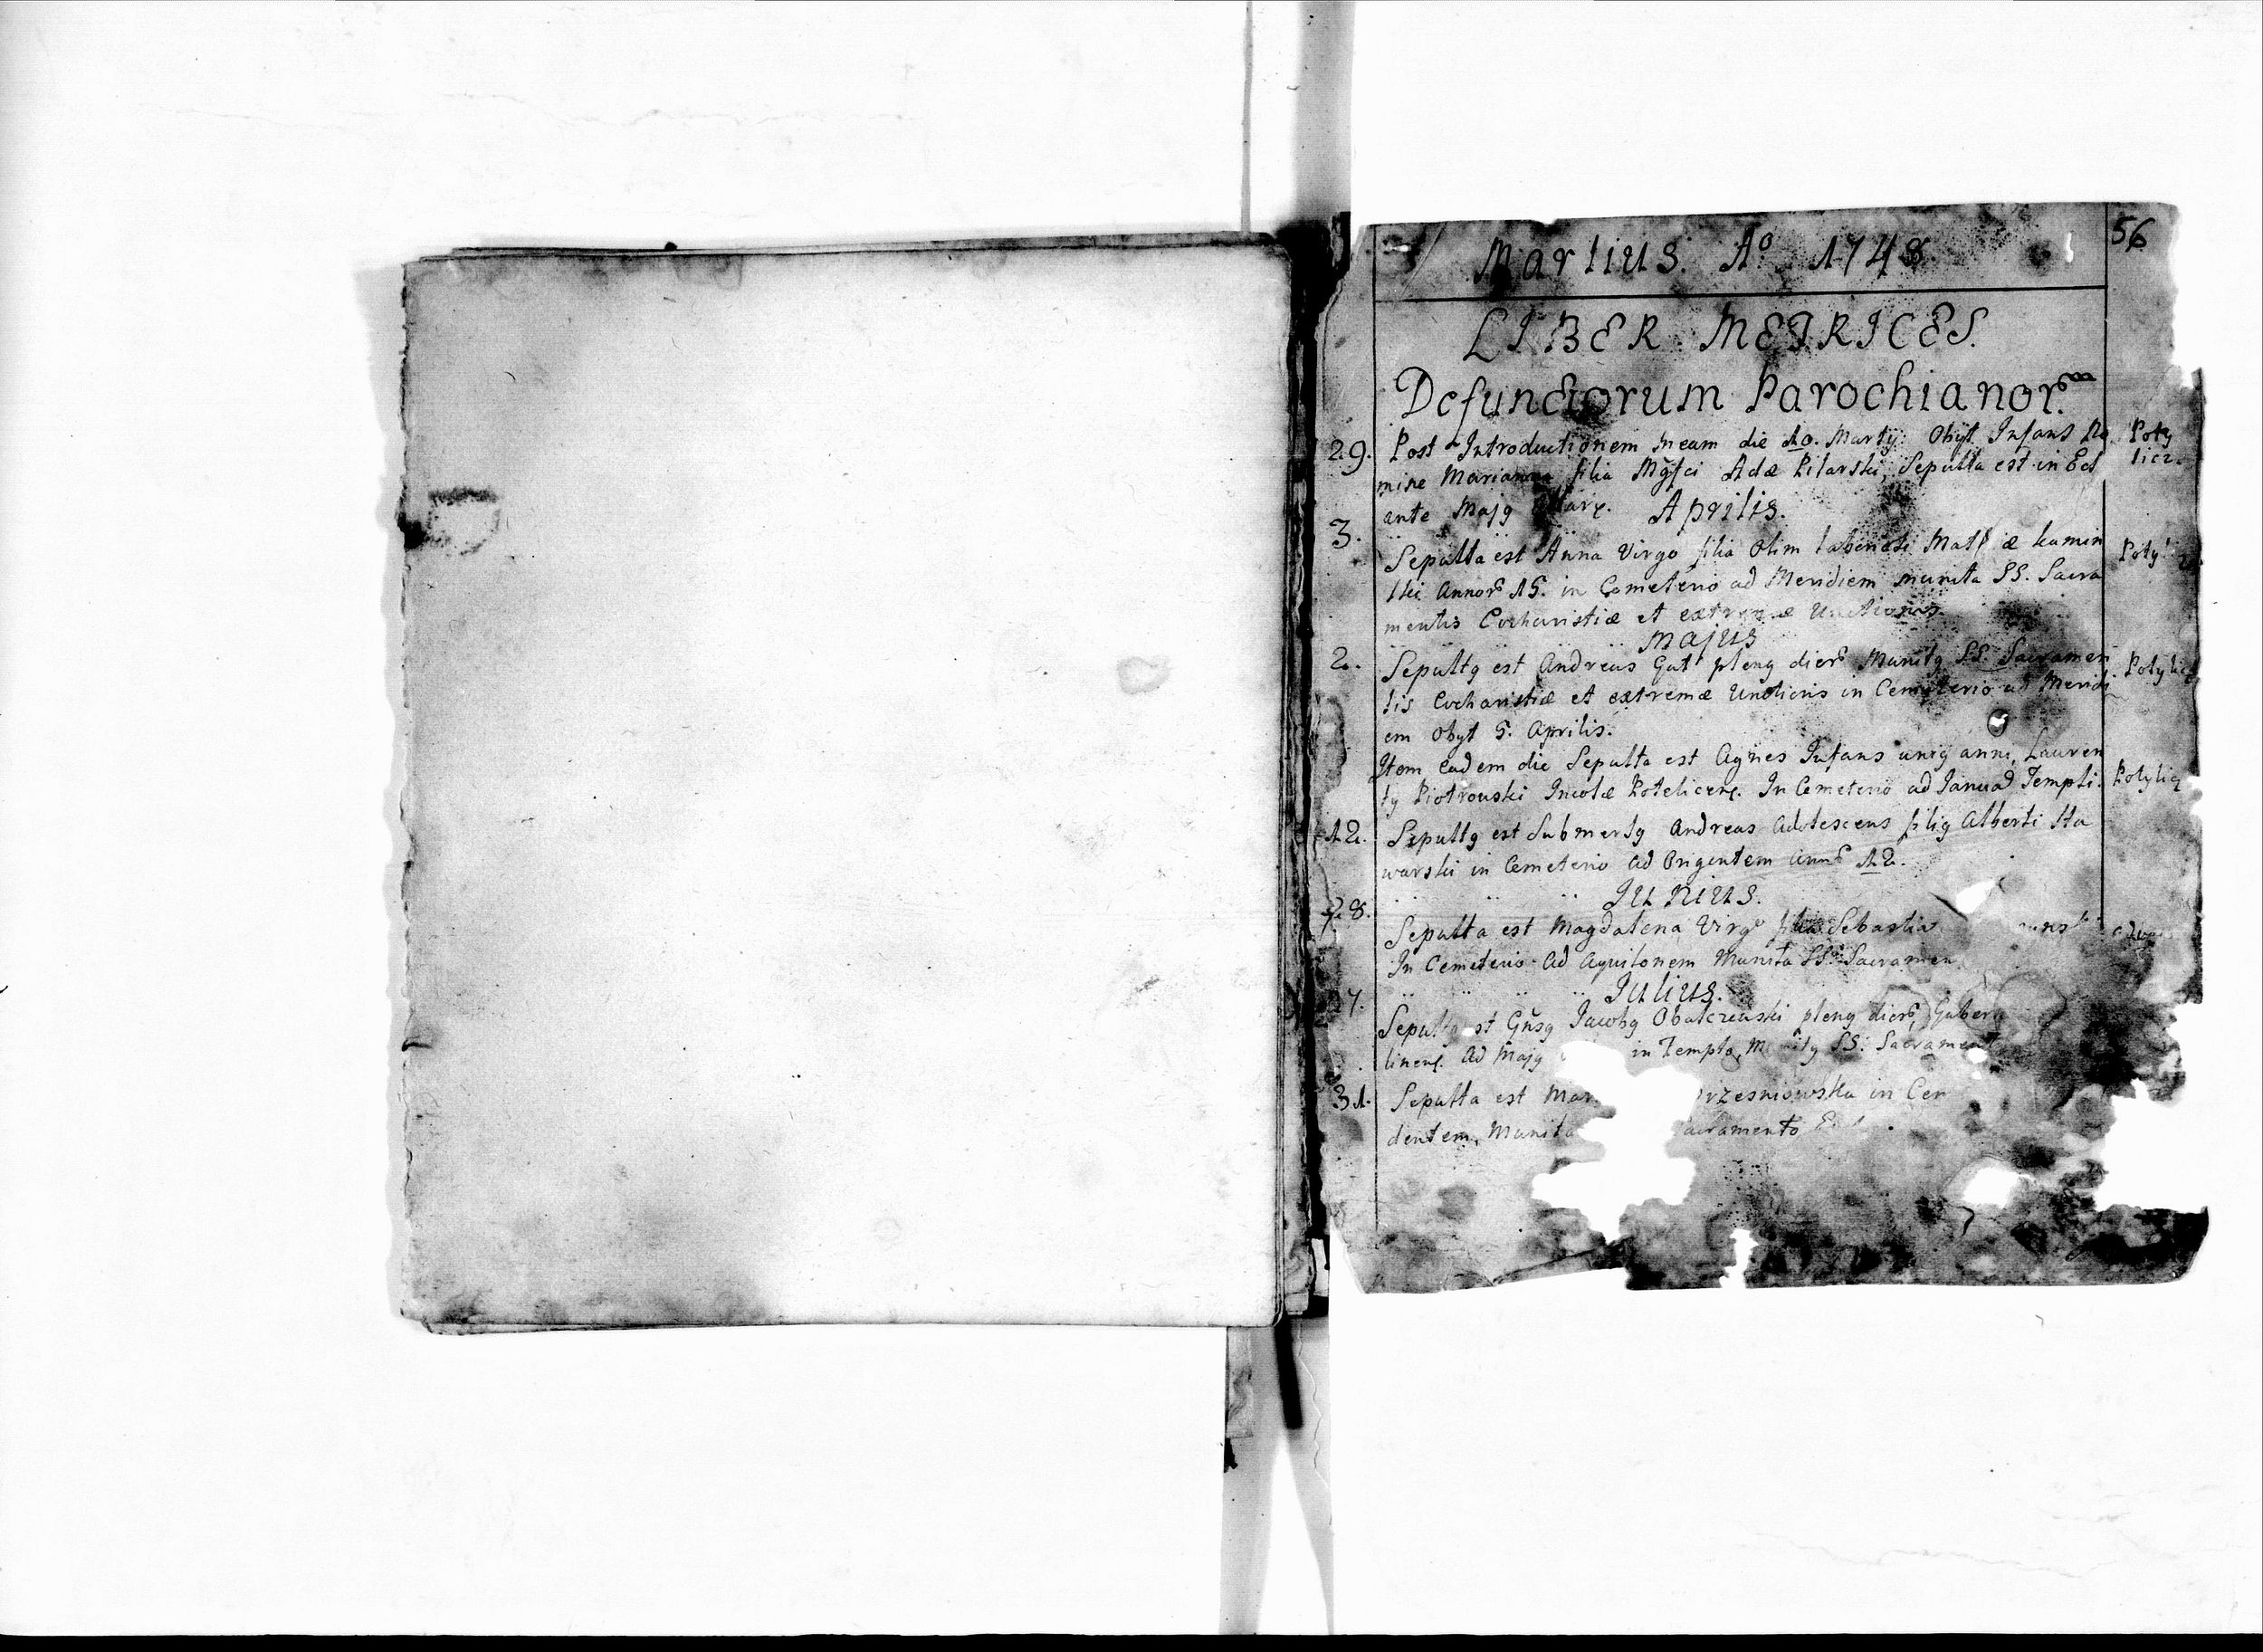 56
Martius. Aº 1748
LIBER METRICES.
Defunctorum Parochianor.m
29. Post Introductionem meam die 10. Martij Obijt Infans No Poty
mine Marianna filia Mgfci Adæ Pilarski, Sepulta est in Ecl licz.
ante Maj9 Altare. Aprilis.
3. Sepulta est Anna Virgo filia Olim Mat æ Kamin Poty
ski Annor 15. in Cemeterio ad Meridiem munita SS. Sacra
mentis Eucharistiæ et extremæ Unctionis.
Majus
2. Sepult9 est Andreas Gut plen9 dier Munit9 SS. Sacramen Potylicz
tis Eucharistiæ et extremæ Unctionis in Cemeterio ad Meridi
em Obyt 5. Aprilis.
Item eadem die Sepulta est Agnes Infans uni9 anni, Lauren
ty Piotrowski Incolæ Potelicen. In Cemeterio ad Januã Templi. Potylicz
12. Sepult9 est Submers9 Andreas Adolescens fili9 Alberti Sta
warski in Cemeterio ad Orientem Ann 12.
Junius.
28. Sepulta est Magdalena Virgo filia Sebastia
In Cemeterio ad Aquilonem Munita SS. Sacramen
Julius.
27. Sepult9 est Gns9 Jacob9 Obalczewski plen9 dier, Gubern
linen. Ad Maj9 in Templo, M it9 SS. Sacrament
31. Sepulta est Mar rzesniowska in Cem
dentem, Munita acramento